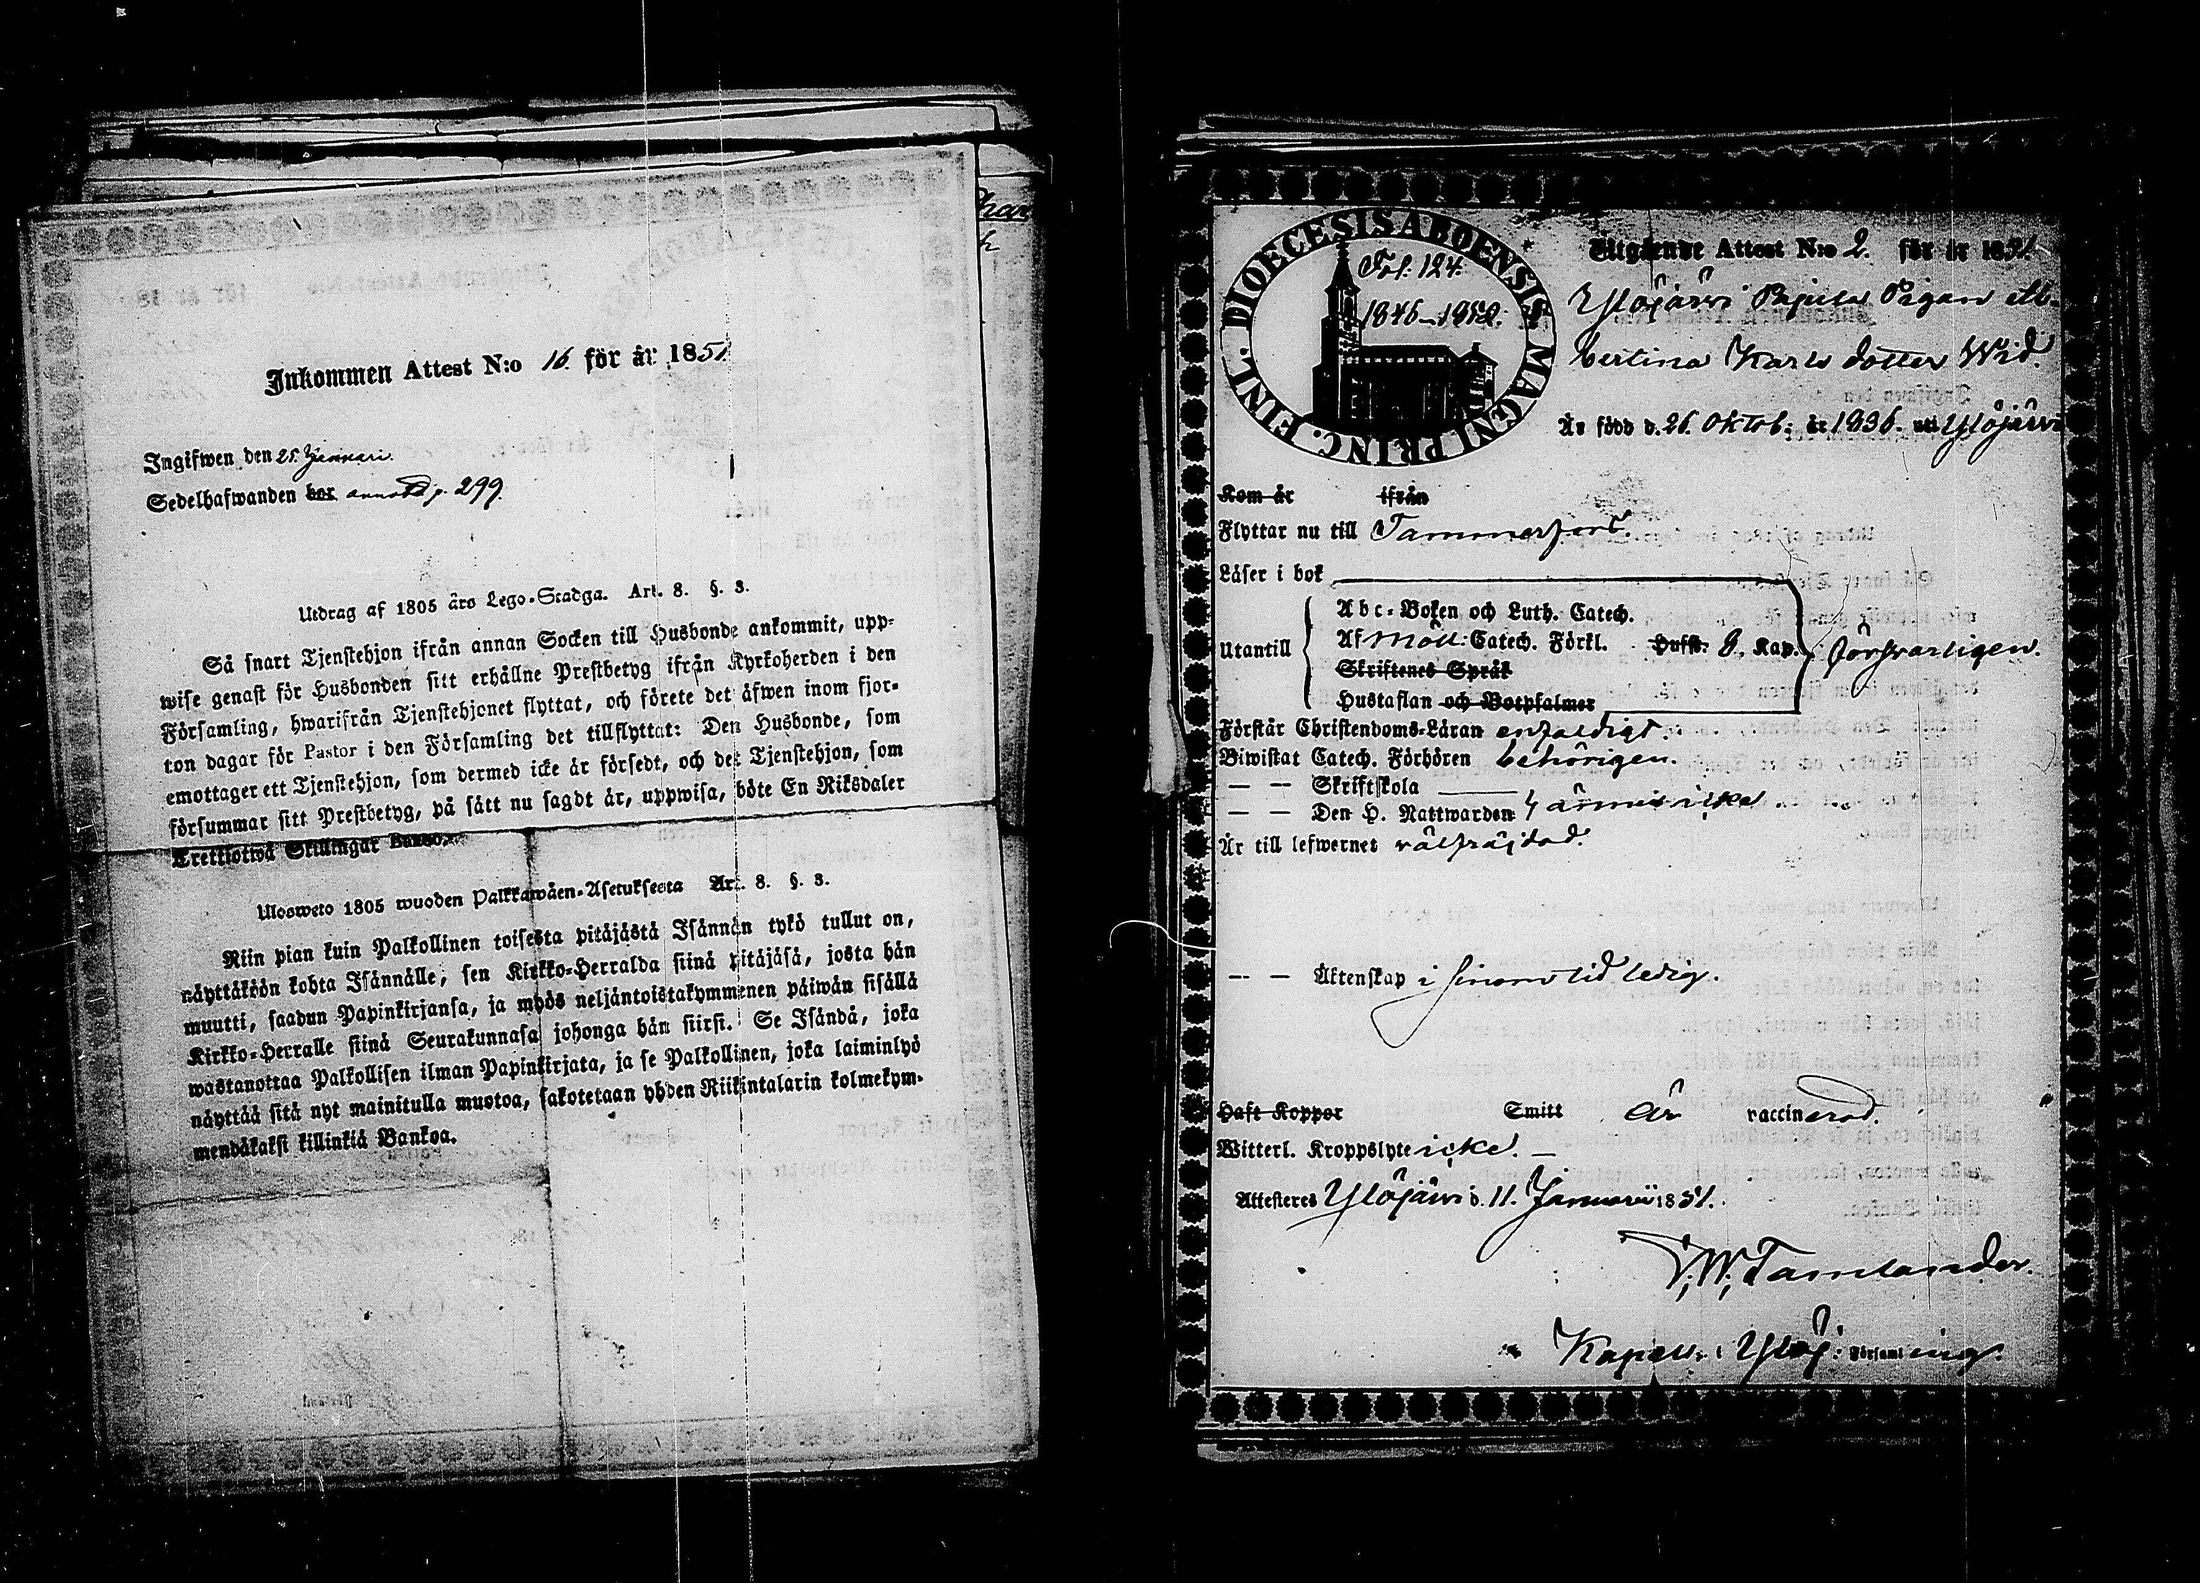 Inkommen Attest N:o 16. för år 1851
Ingifwen den 25. Januari.
Sedelhafwanden bor annotd p. 299.
Utdrag af 1805 års Lego-Stadga. Art. 8. §. 3.
Så snart Tjenstehjon ifrån annan Socken till Husbonde ankommit, upp-
wise genast för Husbonden sitt erhållne Prestbetyg ifrån Kyrkoherden i den
Församling, hwarifrån Tjenstehjonet flyttat, och förete det äfwen inom fjor-
ton dagar för Pastor i den Församling det tillflyttat: Den Husbonde, som
emottager ett Tjenstehjon, som dermed icke är försedt, och det Tjenstehjon, som
försummar sitt Prestbetyg, på sätt nu sagdt är, uppwisa, böte En Riksdaler
Trettiotwå Skillingar Banko.
Ulosweto 1805 wuoden Palkkawäen-Asetuksesta Art. 8. §. 3.
Niin pian kuin Palkollinen toisesta pitäjästä Isännän tykö tullut on,
näyttäköön kohta Isännälle, sen Kirkko-Herralda siinä pitäjäsä, josta hän
muutti, saadun Papinkirjansa, ja myös neljäntoistakymmenen päiwän sisällä
Kirkko-Herralle siinä Seurakunnasa johonga hän siirsi. Se Isändä, joka
wastanottaa Palkollisen ilman Papinkirjata, ja se Palkollinen, joka laiminlyö
näyttää sitä nyt mainitulla muotoa, sakotetaan yhden Riikintalarin kolmekym-
mendäkaksi killinkiä Bankoa.
DIOECESIS ABOENSIS MAGNI PRINC. FINL.
Fol. 124.
1846-1852.
Utgående Attest N:o 2. för år 1851
Ylöjärvi Pajula Pigan Al-
bertina Karls dotter Wid.
Är född d. 26. Oktob: år 1836. uti Ylöjärvi
Kom år ifrån
Flyttar nu till Tammerfors.
Läser i bok
Utantill
Abc-Boken och Luth. Catech.
Af Möll: Catech. Förkl. Hufst. 8. Kap. försvarligen.
Skriftenes Språk
Hustaflan och Botpsalmer
Förstår Christendoms-Läran enfaldigt.
Biwistat Catech. Förhören behörigen.
— — Skriftskola
— — Den H. Nattwarden ännu icke
Är till lefwernet välfräjdad.
— — Äktenskap i sinom tid ledig.
Haft Koppor Smitt är vaccinerad.
Witterl. Kroppslyte icke. —
Attesteres Ylöjärvi d. 11. Januari 1851.
W. Tamlander.
Kapell. i Ylöj: Församling.